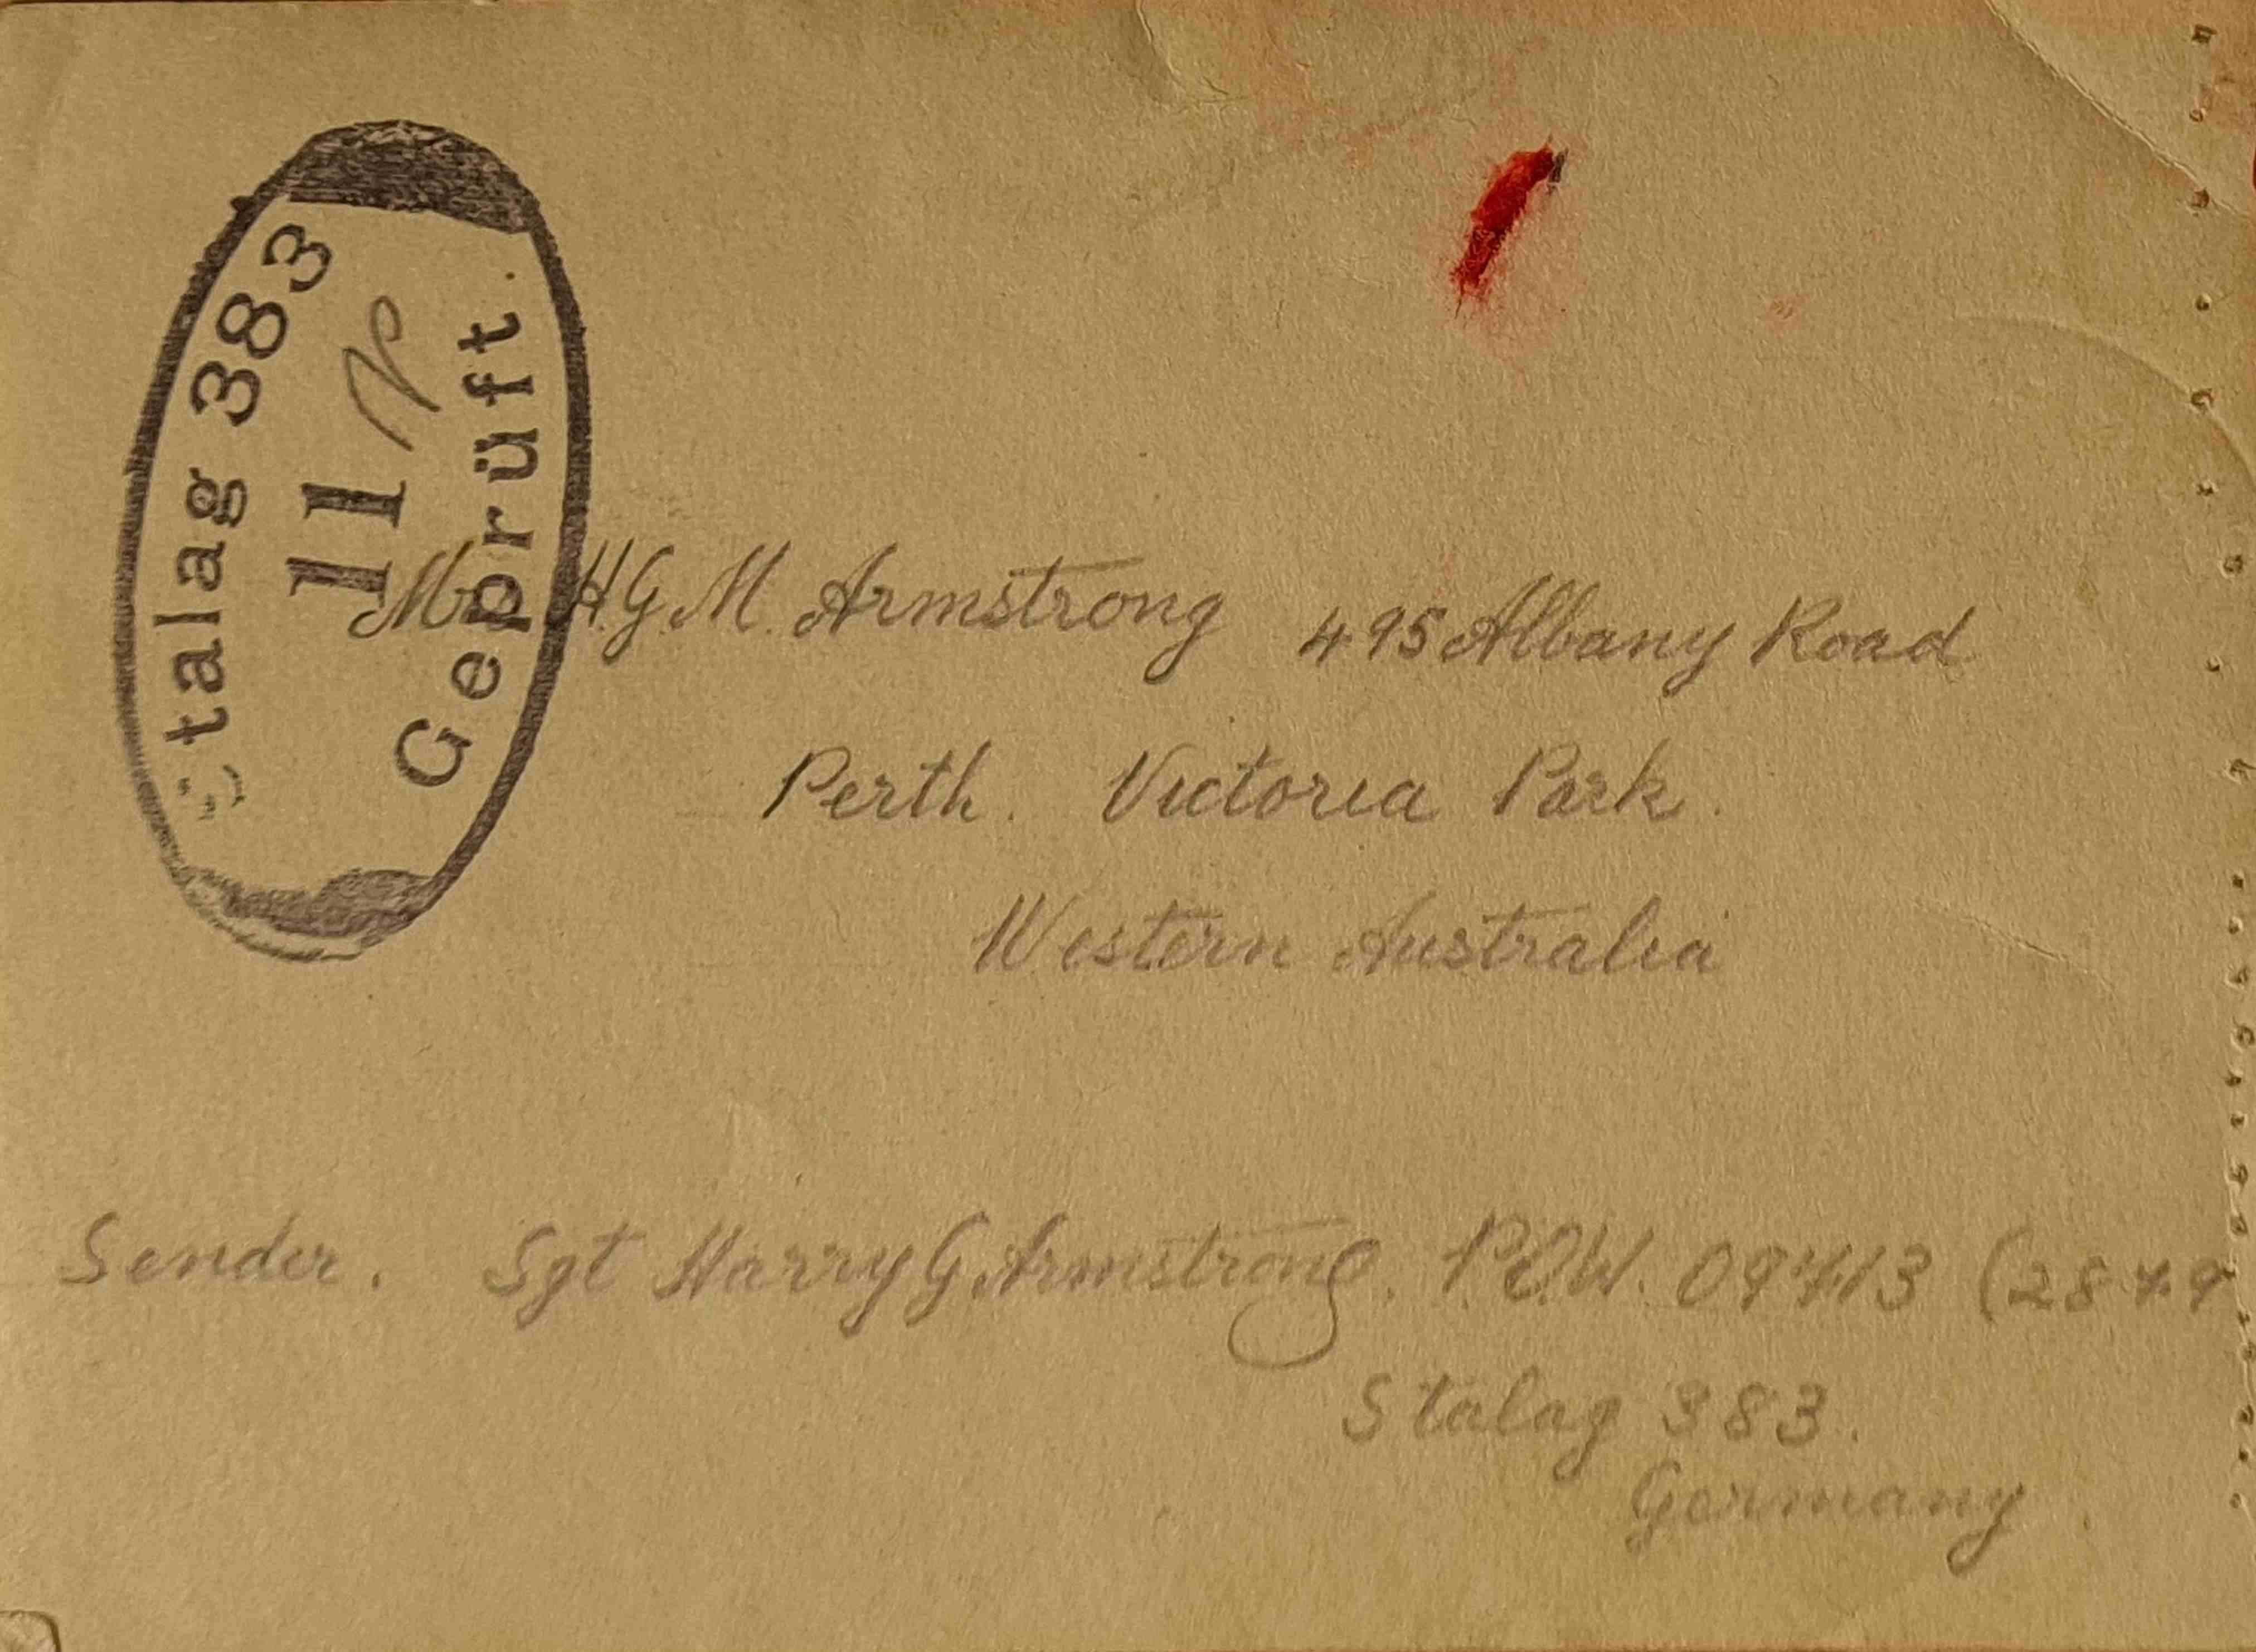 Stalag 383
11
Geprüft.
Mr H.G.M. Armstrong 495 Albany Road
Perth. Victoria Park.
Western Australia
Sender. Sgt Harry G Armstrong. P.O.W. 09413 (2879
Stalag 383.
Germany.